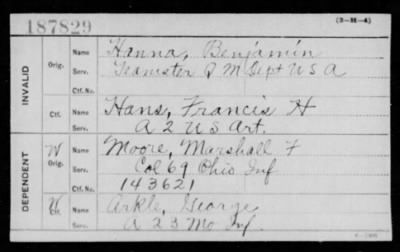 187829
(3-M-4)
INVALID
Orig.
Name
Hanna, Benjamin
Serv.
Teamster Q M Dept U S A
Ctf. No.
Ctf.
Name
Hans, Francis H
Serv.
A 2 U S Art.
DEPENDENT
W
Orig.
Name
Moore, Marshall F
Serv.
Col 69 Ohio Inf
Ctf. No.
143621
W
Ctf.
Name
Arkle, George
Serv.
A 23 Mo Inf.